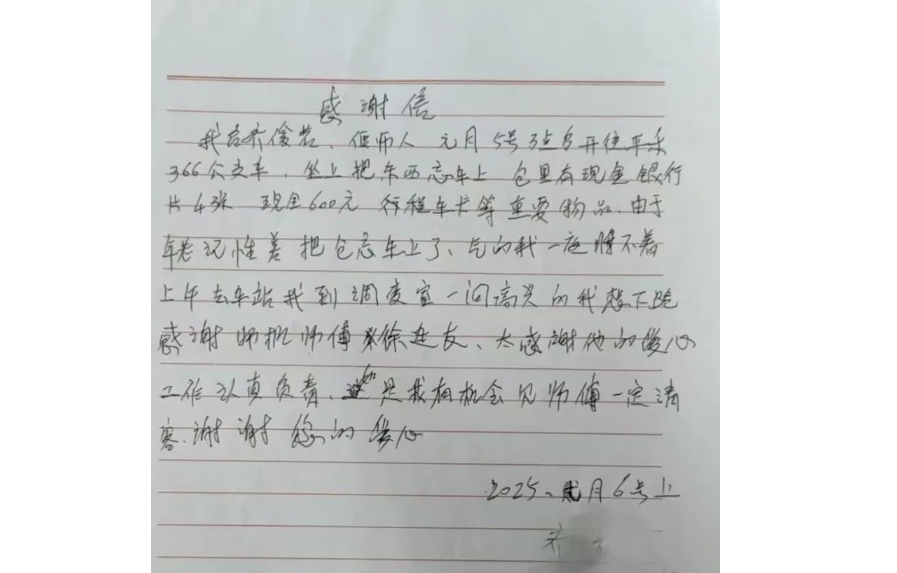 感谢信
我名齐俊芳、偃师人 元月5号3点多开往平乐
366公交车、坐上把东西忘车上 包里有现金银行
片4张 现金600元 行程车卡等重要物品.由于
年老记性差 把包忘车上了、气的我一夜睡不着
上午去车站找到调度室一问高兴的我想下跪
感谢师机师傅徐连友、太感谢他的爱心
工作认真负责、如是我有机会见师傅一定请
客.谢谢您的爱心
2025、元月6号上
齐